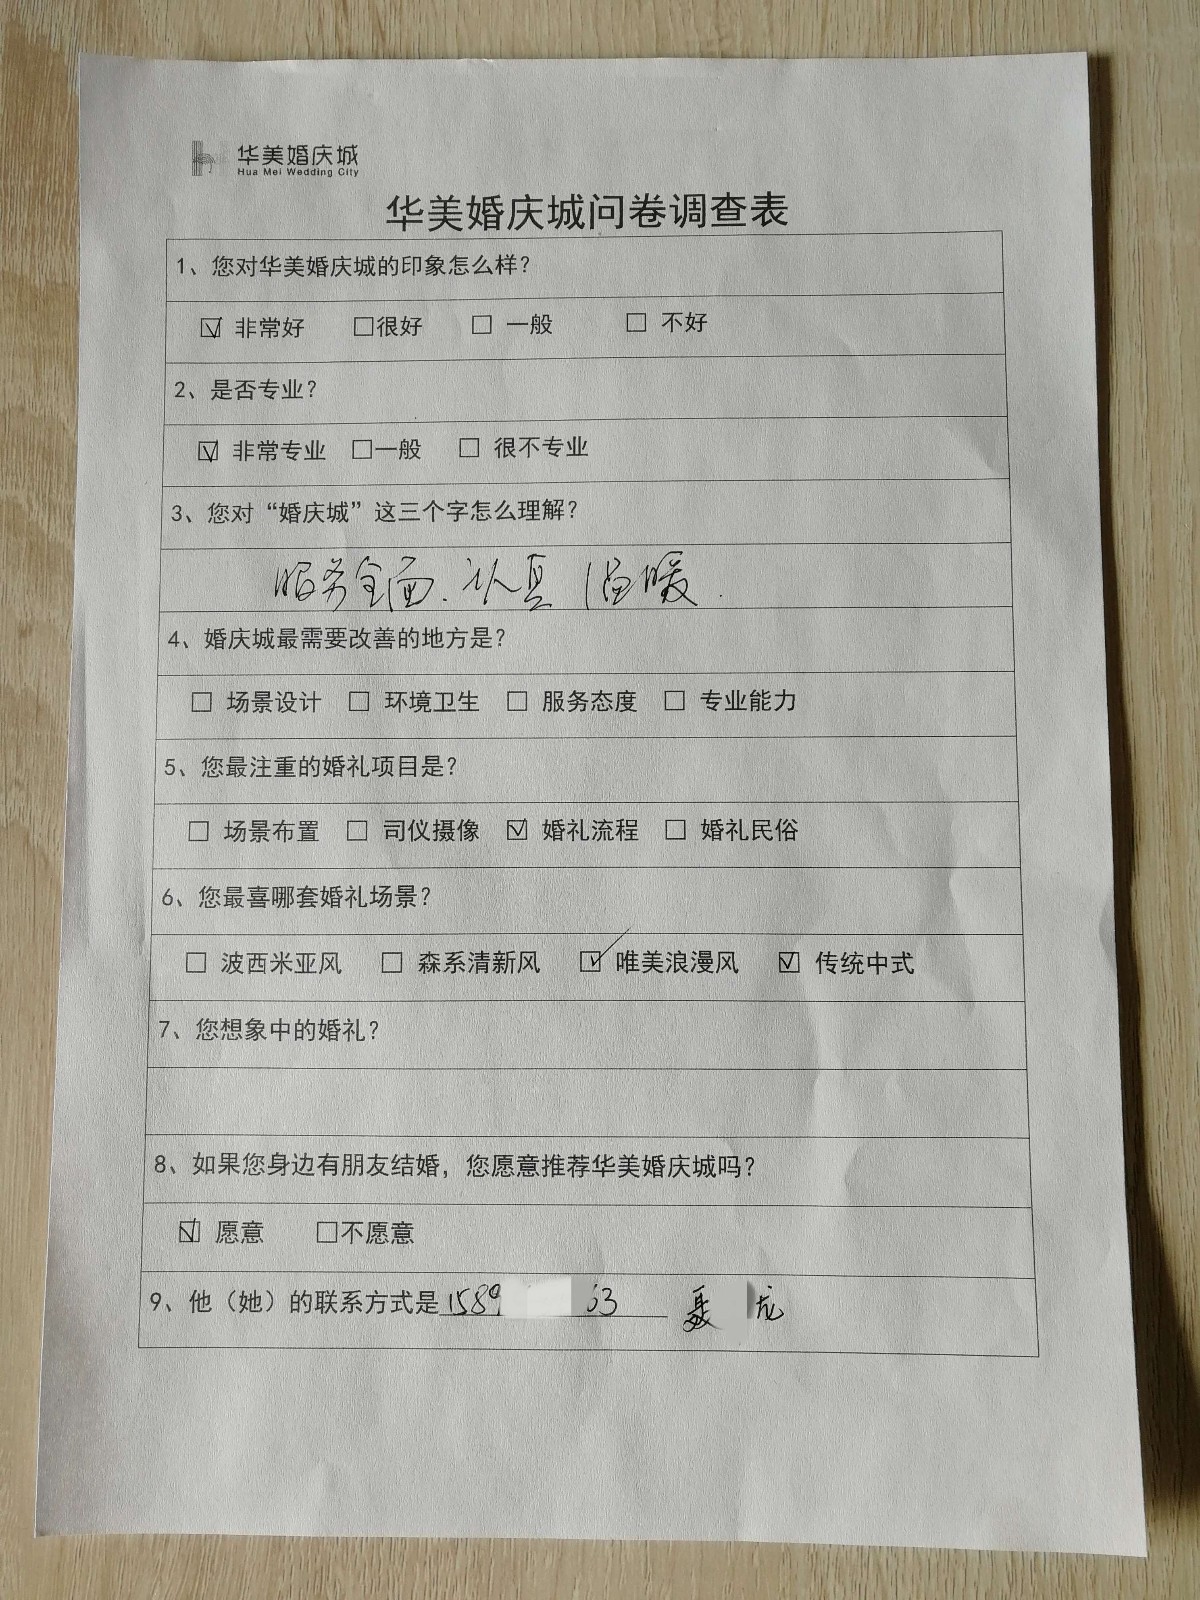 华美婚庆城
Hua Mei Wedding City
华美婚庆城问卷调查表
1、您对华美婚庆城的印象怎么样？
☑ 非常好 □很好 □ 一般 □ 不好
2、是否专业？
☑ 非常专业 □一般 □ 很不专业
3、您对“婚庆城”这三个字怎么理解？
服务全面.认真 温暖.
4、婚庆城最需要改善的地方是？
□ 场景设计 □ 环境卫生 □ 服务态度 □ 专业能力
5、您最注重的婚礼项目是？
□ 场景布置 □ 司仪摄像 ☑ 婚礼流程 □ 婚礼民俗
6、您最喜哪套婚礼场景？
□ 波西米亚风 □ 森系清新风 ☑ 唯美浪漫风 ☑ 传统中式
7、您想象中的婚礼？
8、如果您身边有朋友结婚，您愿意推荐华美婚庆城吗？
☑ 愿意 □不愿意
9、他（她）的联系方式是 1589 63 聂 龙